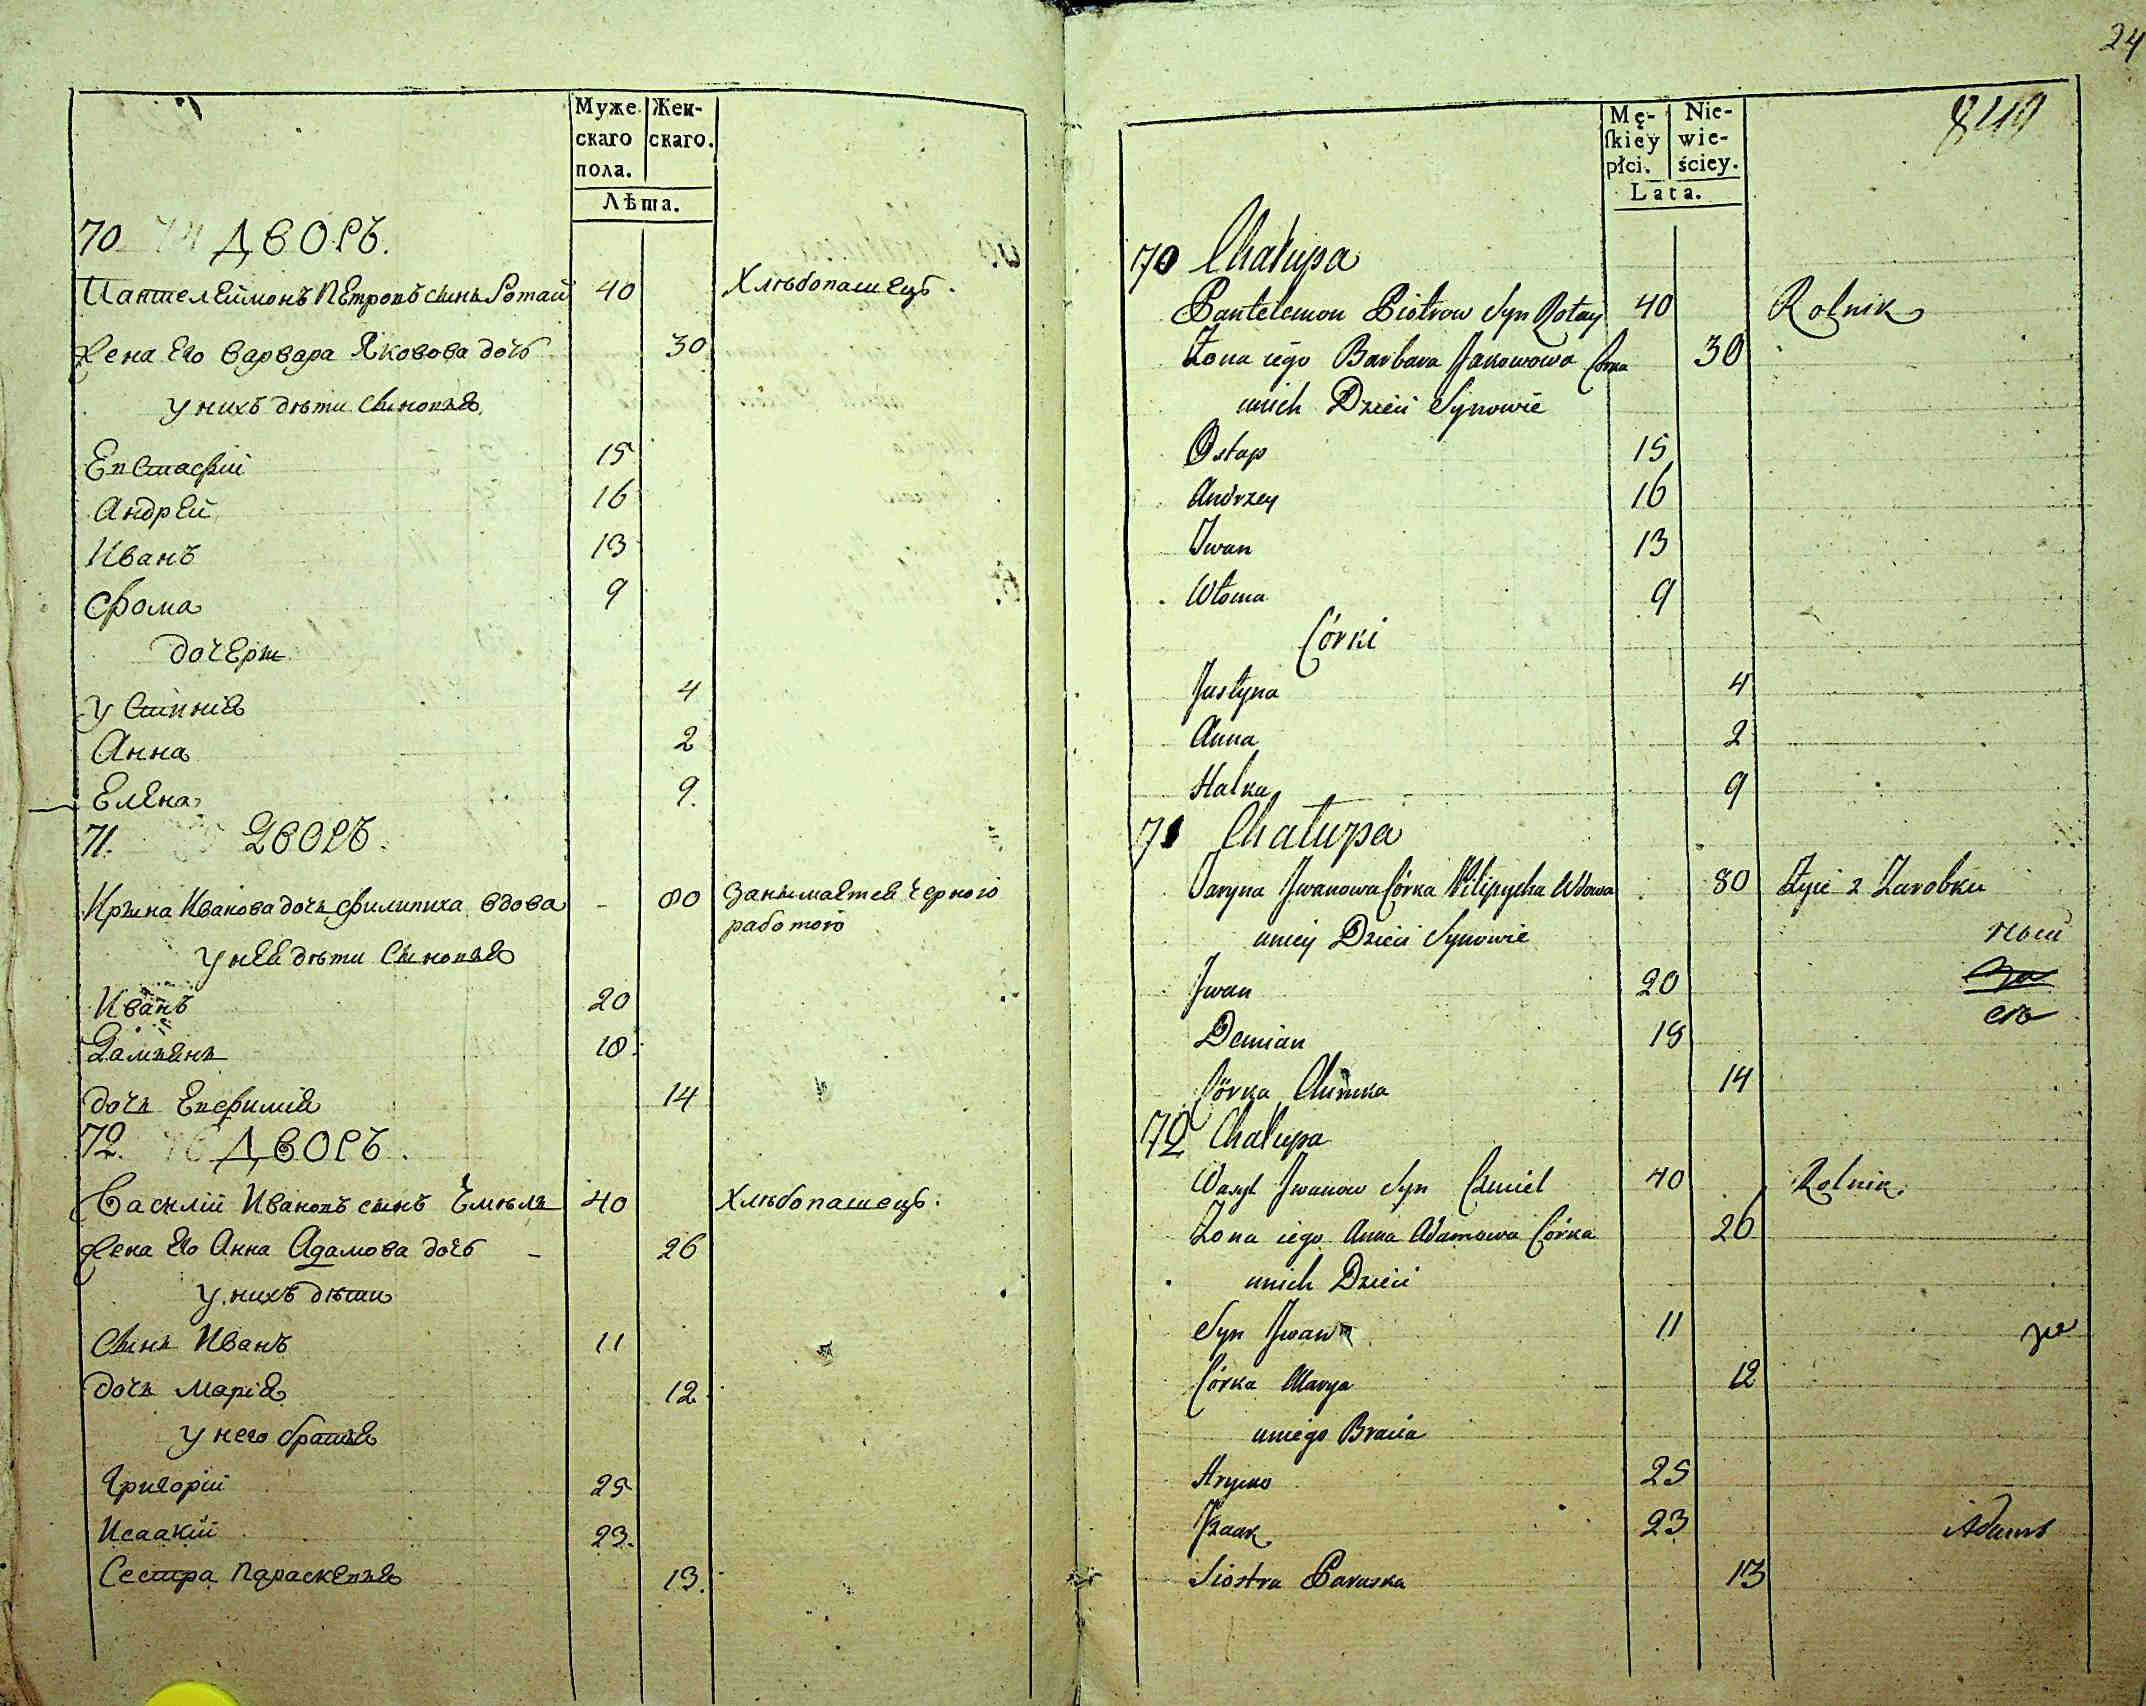 Муже
скаго
пола.
Жен-
скаго.
Лѣта.
70 74 ДВОРЪ.
Пантелеймонъ Петровъ сынъ Ротай 40 Хлѣбопашецъ.
Жена Его Варвара Яковова дочь 30
у нихъ дѣти сыновья
Евстафій 15
Андрей 16
Иванъ 13
Фома 9
дочери
Устинія 4
Анна 2
Елена 9.
71. ДВОРЪ.
Ирына Иванова дочь Филипиха вдова - 80 Занымается Черного
работого
у нея дѣти сыновья
Иванъ 20
Дамьянъ 18.
дочь Евфимія 14
72. 76 ДВОРЪ.
Василій Ивановъ сынъ Чмѣль 40 Хлѣбопашецъ.
Жена Его Анна Адамова дочь - 26
у нихъ дѣти
сынъ Иванъ 11
дочь Марія 12
у него братья
Григорій 25
Исаакій 23.
Сестра Параскевья 13.
24
Mę-
ſkiey
płci.
Nie-
wie-
ściey.
Lata.
70 Chałupa
Pantelemon Piotrow Syn Rotay 40 Rolnik
Żona iego Barbara Jakowowa Córka 30
unich Dzieci Synowie
Ostap 15
Andrzey 16
Jwan 13
Wtoma 9
Córki
Justyna 4
Anna 2
Halka 9
71 Chałupa
Jaryna Jwanowa Córka Filipycha Wdowa 80 Żyie z Zarobku
uniey Dzieci Synowie
Jwan 20
Demian 18
Córka Chimka 14
72 Chałupa
Wasyl Jwanow Syn Czmiel 40 Rolnik.
Żona iego Anna Adamowa Córka 26
unich Dzieci
Syn Jwan 11
Córka Marya 12
uniego Bracia
Hryćko 25
Jzaak 23
Siostra Paraska 13